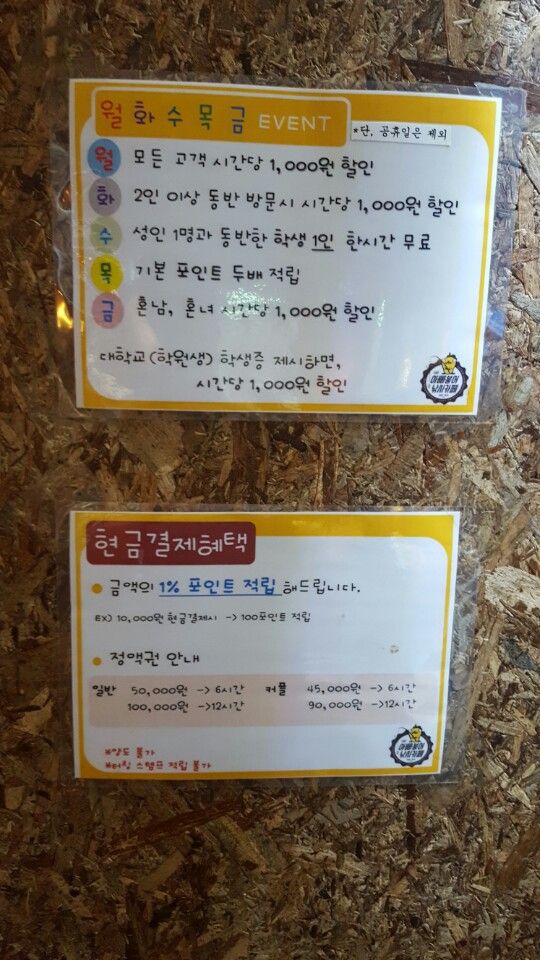 월 화 수 목 금 EVENT
*단, 공휴일은 제외
월 모든 고객 시간당 1,000원 할인
화 2인 이상 동반 방문시 시간당 1,000원 할인
수 성인 1명과 동반한 학생 1인 한시간 무료
목 기본 포인트 두배 적립
금 혼남, 혼녀 시간당 1,000원 할인
대학교(학원생) 학생증 제시하면,
시간당 1,000원 할인
아빠붕어
낚시카페
현금결제혜택
• 금액의 1% 포인트 적립 해드립니다.
EX) 10,000원 현금결제시 -> 100포인트 적립
• 정액권 안내
일반 50,000원 -> 6시간 커플 45,000원 -> 6시간
100,000원 ->12시간 90,000원 ->12시간
※양도 불가
※터칭 스탬프 적립 불가
아빠붕어
낚시카페